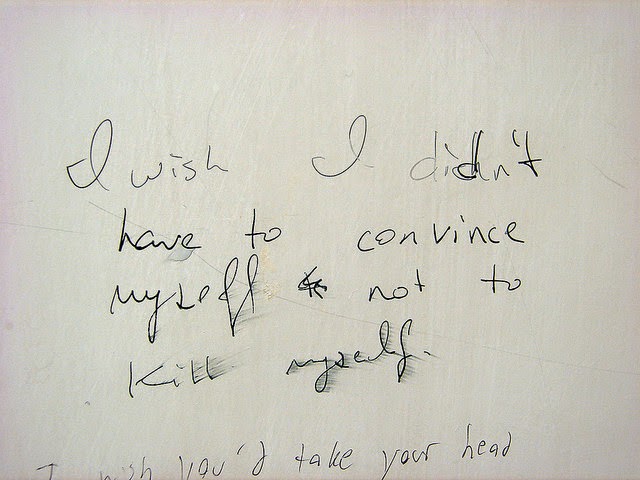 I wish I didn't
have to convince
myself not to
kill myself.
I wish you'd take your head